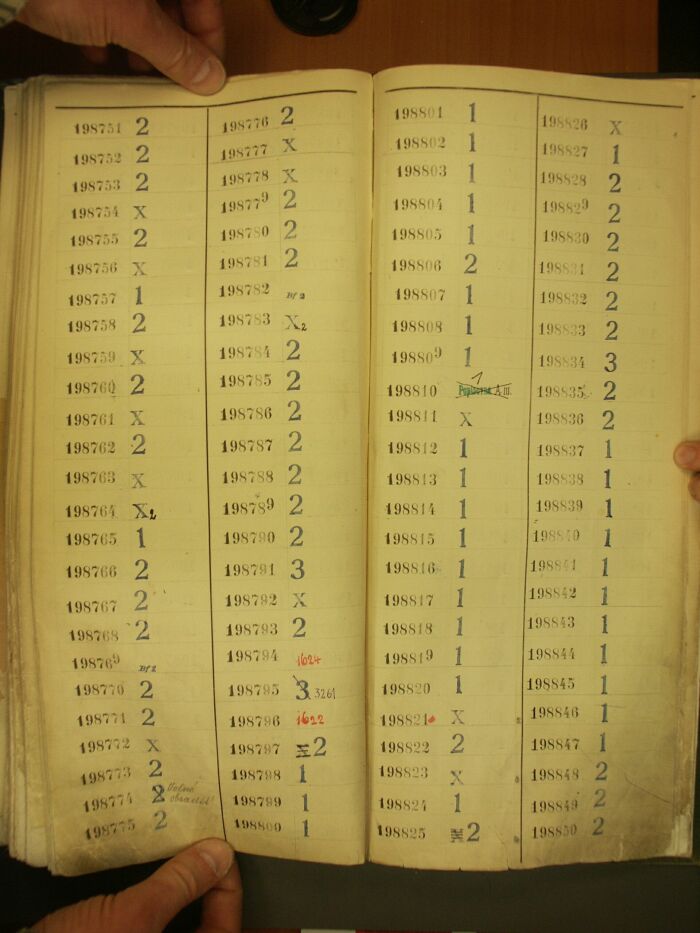 198751 2
198752 2
198753 2
198754 X
198755 2
198756 X
198757 1
198758 2
198759 X
198760 2
198761 X
198762 2
198763 X
198764 X2
198765 1
198766 2
198767 2
198768 2
198769 Bf 2
198770 2
198771 2
198772 X
198773 2
198774 2
198775 2
198776 2
198777 X
198778 X
198779 2
198780 2
198781 2
198782 Bf 2
198783 X2
198784 2
198785 2
198786 2
198787 2
198788 2
198789 2
198790 2
198791 3
198792 X
198793 2
198794 1624
198795 3 3261
198796 1622
198797 X 2
198798 1
198799 1
198800 1
198801 1
198802 1
198803 1
198804 1
198805 1
198806 2
198807 1
198808 1
198809 1
198810 1 A.III.
198811 X
198812 1
198813 1
198814 1
198815 1
198816 1
198817 1
198818 1
198819 1
198820 1
198821 X
198822 2
198823 X
198824 1
198825 X 2
198826 X
198827 1
198828 2
198829 2
198830 2
198831 2
198832 2
198833 2
198834 3
198835 2
198836 2
198837 1
198838 1
198839 1
198840 1
198841 1
198842 1
198843 1
198844 1
198845 1
198846 1
198847 1
198848 2
198849 2
198850 2